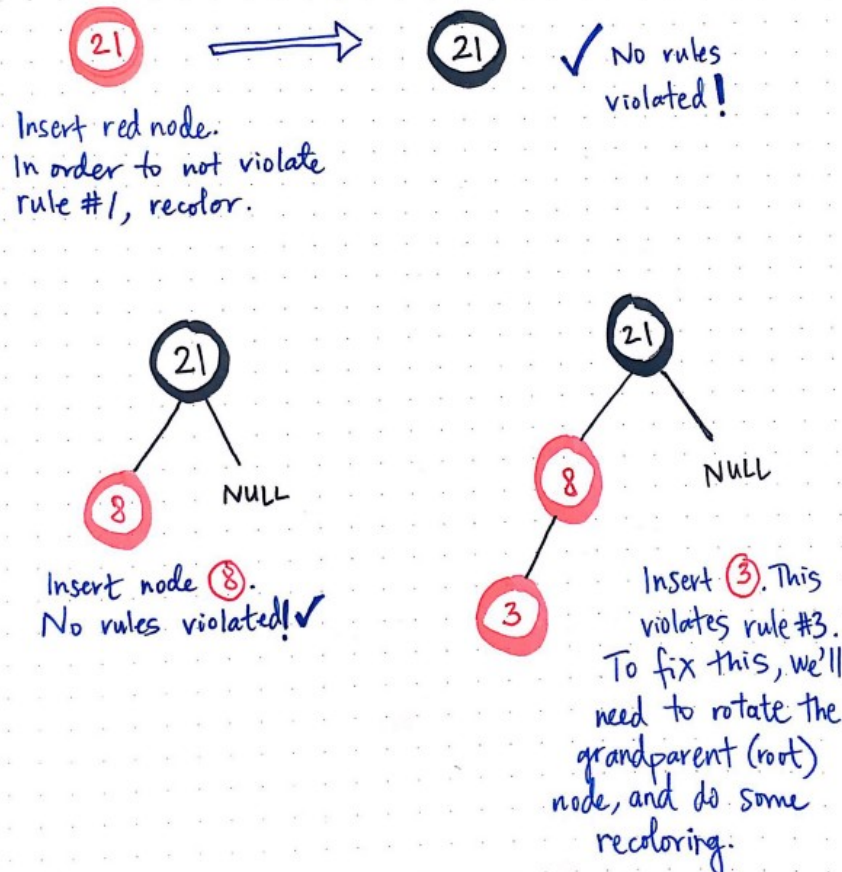 21
21
✓ No rules
violated!
Insert red node.
In order to not violate
rule #1, recolor.
21
8
NULL
Insert node 8.
No rules violated!✓
21
8
NULL
3
Insert 3. This
violates rule #3.
To fix this, we'll
need to rotate the
grandparent (root)
node, and do some
recoloring.